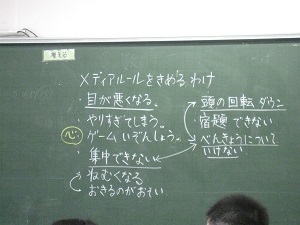 考えよう
メディアルールをきめるわけ
・目が悪くなる。
・やりすぎてしまう。
心 ゲームいぞんしょう。
・集中できない
・ねむくなる
おきるのがおそい
・頭の回転ダウン
・宿題できない
・べんきょうについて
いけない